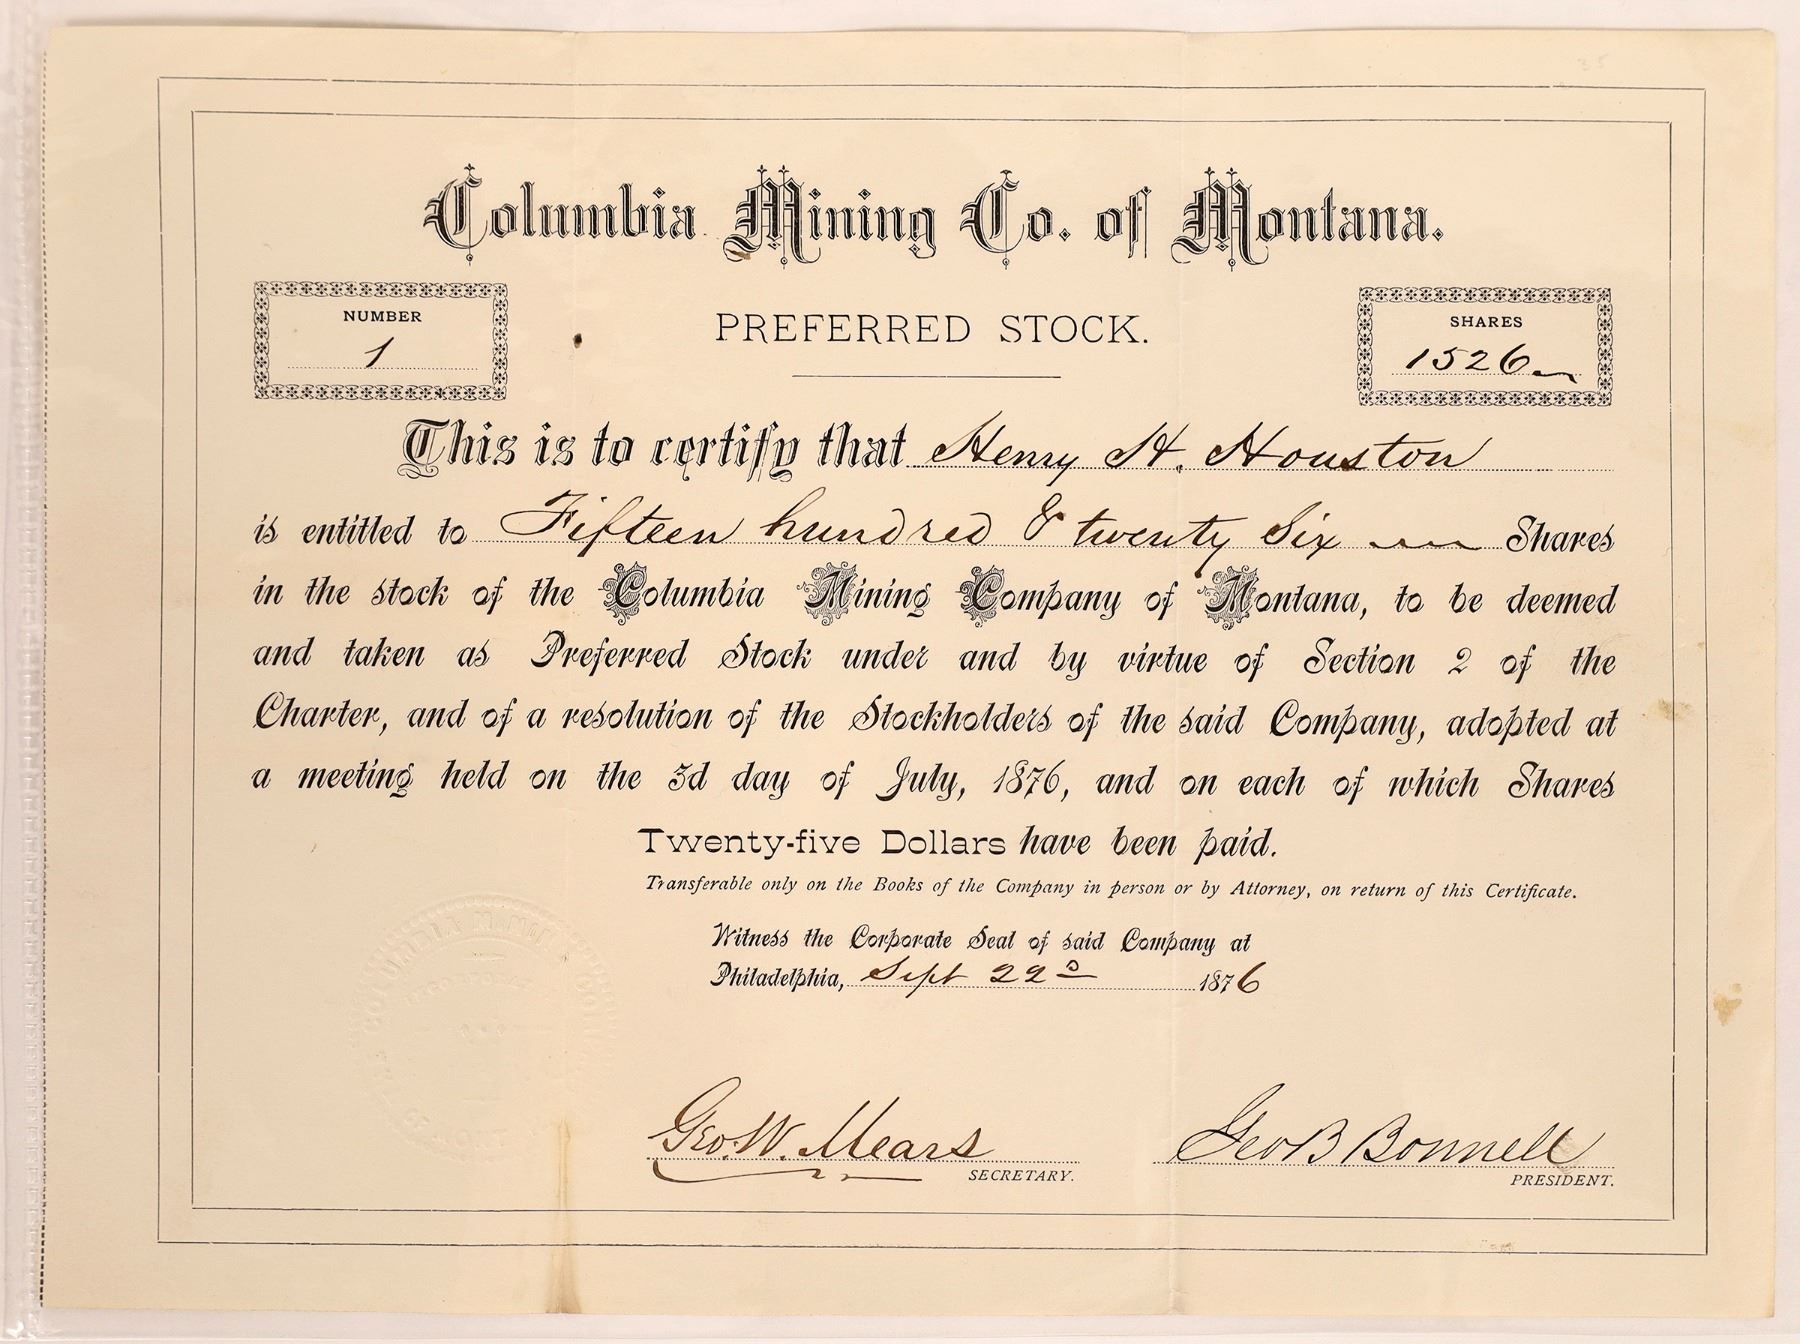 Columbia Mining Co. of Montana.
NUMBER
1
PREFERRED STOCK.
SHARES
1526
This is to certify that Henry H. Houston
is entitled to Fifteen hundred & twenty Six Shares
in the stock of the Columbia Mining Company of Montana, to be deemed
and taken as Preferred Stock under and by virtue of Section 2 of the
Charter, and of a resolution of the Stockholders of the said Company, adopted at
a meeting held on the 3d day of July, 1876, and on each of which Shares
Twenty-five Dollars have been paid.
Transferable only on the Books of the Company in person or by Attorney, on return of this Certificate.
Witness the Corporate Seal of said Company at
Philadelphia, Sept 22d 1876
Geo. W. Mears
SECRETARY.
Geo B Bonnell
PRESIDENT.